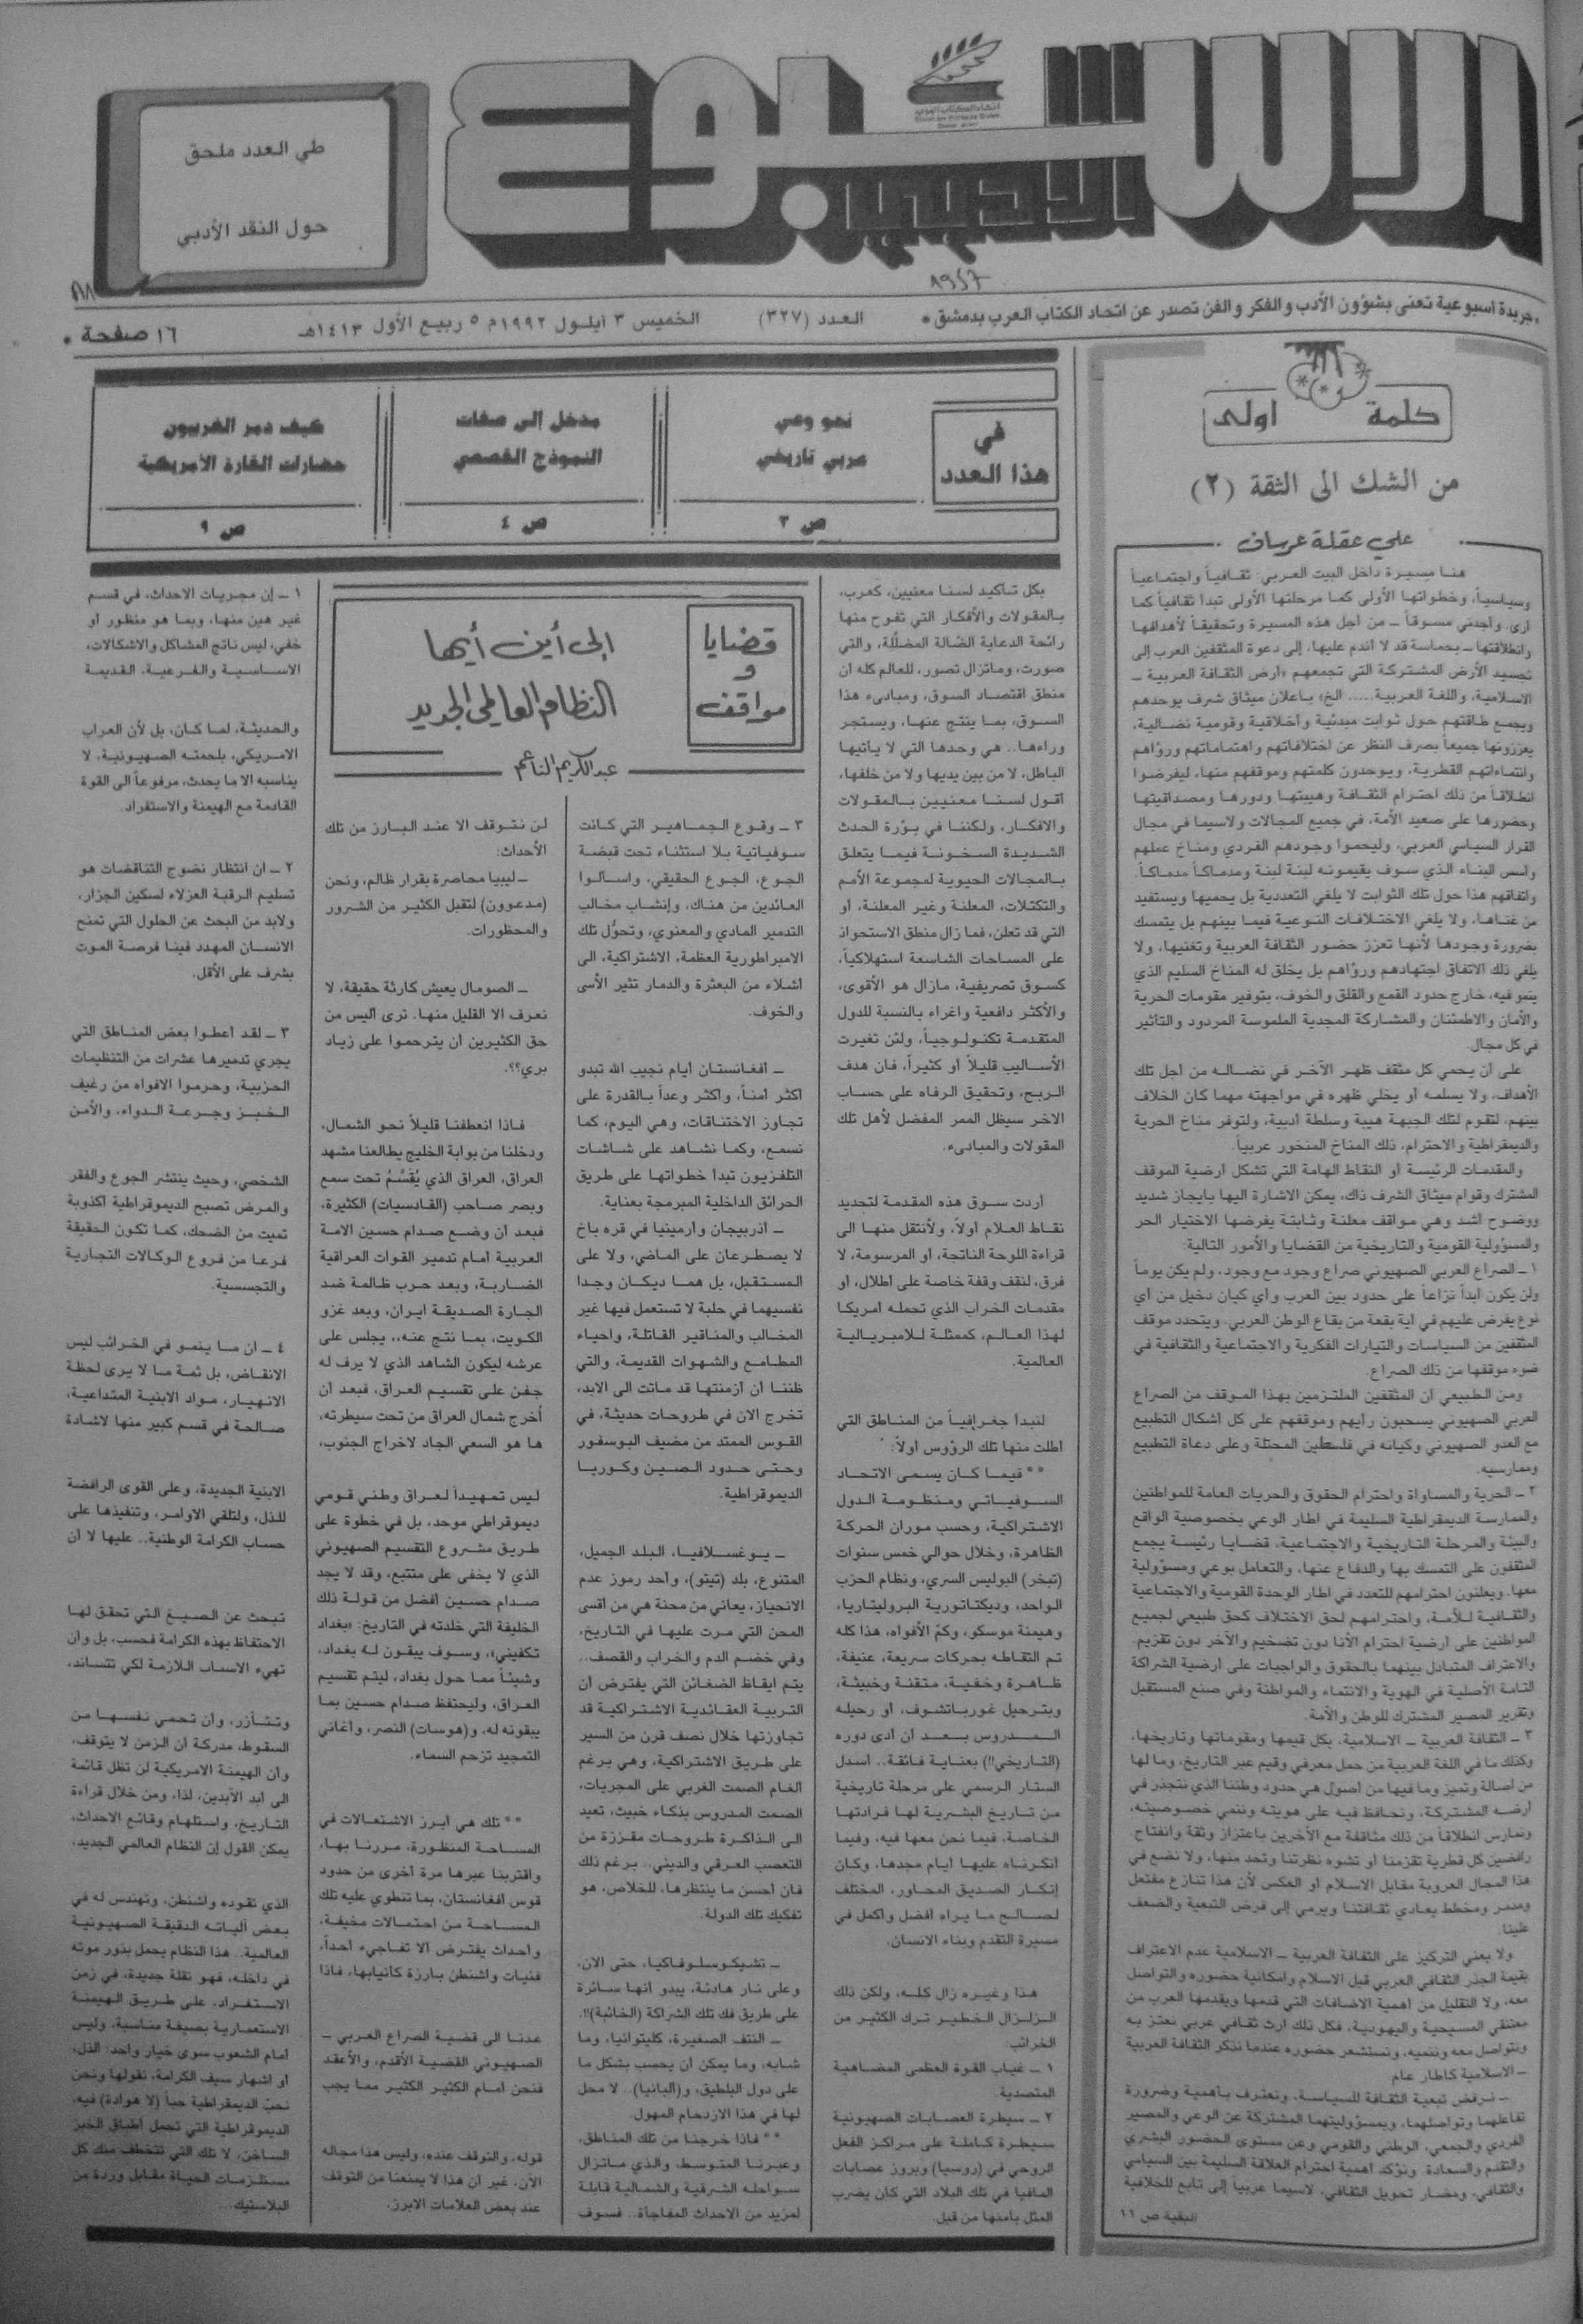 الأسبوع
الأدبي
طي العدد ملحق
حول النقد الأدبي
جريدة أسبوعية تعنى بشؤون الأدب والفكر والفن تصدر عن اتحاد الكتاب العرب بدمشق *
العدد (٣٢٧)
الخميس ٣ أيلول ١٩٩٢م ٥ ربيع الأول ١٤١٣هـ
١٦ صفحة *
كلمة أولى
من الشك الى الثقة (٢)
علي عقلة عرسان
هنا مسيرة داخل البيت العربي: ثقافياً واجتماعياً
وسياسياً، وخطواتها الأولى كما مرحلتها الأولى تبدأ ثقافياً كما
أرى. وأجدني مسوقاً ــ من أجل هذه المسيرة وتحقيقاً لأهدافها
وانطلاقتها ــ بحماسة قد لا أندم عليها، إلى دعوة المثقفين العرب إلى
تجسيد الأرض المشتركة التي تجمعهم «أرض الثقافة العربية ــ
الاسلامية، واللغة العربية..... الخ» باعلان ميثاق شرف يوحدهم
ويجمع طاقتهم حول ثوابت مبدئية وأخلاقية وقومية نضالية،
يعززونها جميعاً بصرف النظر عن اختلافاتهم واهتماماتهم ورؤاهم
وانتماءاتهم القطرية، ويوحدون كلمتهم وموقفهم منها، ليفرضوا
انطلاقاً من ذلك احترام الثقافة وهيبتها ودورها ومصداقيتها
وحضورها على صعيد الأمة، في جميع المجالات ولاسيما في مجال
القرار السياسي العربي، وليحموا وجودهم الفردي ومناخ عملهم
وأسس البناء الذي سوف يقيمونه لبنة لبنة ومدماكاً مدماكاً.
واتفاقهم هذا حول تلك الثوابت لا يلغي التعددية بل يحميها ويستفيد
من غناها، ولا يلغي الاختلافات النوعية فيما بينهم بل يتمسك
بضرورة وجودها لأنها تعزز حضور الثقافة العربية وتغنيها، ولا
يلغي ذلك الاتفاق اجتهادهم ورؤاهم بل يخلق له المناخ السليم الذي
ينمو فيه، خارج حدود القمع والقلق والخوف، بتوفير مقومات الحرية
والأمان والاطمئنان والمشاركة المجدية الملموسة المردود والتأثير
في كل مجال.
على أن يحمي كل مثقف ظهر الآخر في نضاله من أجل تلك
الأهداف، ولا يسلمه أو يخلي ظهره في مواجهته مهما كان الخلاف
بينهم، لتقوم لتلك الجبهة هيبة وسلطة أدبية، ولتوفر مناخ الحرية
والديمقراطية والاحترام، ذلك المناخ المنخور عربياً.
والمقدمات الرئيسة أو النقاط الهامة التي تشكل أرضية الموقف
المشترك وقوام ميثاق الشرف ذاك، يمكن الاشارة اليها بايجاز شديد
ووضوح أشد وهي مواقف معلنة وثابتة يفرضها الاختيار الحر
والمسؤولية القومية والتاريخية من القضايا والأمور التالية:
١ ــ الصراع العربي الصهيوني صراع وجود مع وجود، ولم يكن يوماً
ولن يكون أبداً نزاعاً على حدود بين العرب وأي كيان دخيل من أي
نوع يفرض عليهم في أية بقعة من بقاع الوطن العربي. ويتحدد موقف
المثقفين من السياسات والتيارات الفكرية والاجتماعية والثقافية في
ضوء موقفها من ذلك الصراع.
ومن الطبيعي أن المثقفين الملتزمين بهذا الموقف من الصراع
العربي الصهيوني يسحبون رأيهم وموقفهم على كل أشكال التطبيع
مع العدو الصهيوني وكيانه في فلسطين المحتلة وعلى دعاة التطبيع
وممارسيه.
٢ ــ الحرية والمساواة واحترام الحقوق والحريات العامة للمواطنين
والممارسة الديمقراطية السليمة في اطار الوعي بخصوصية الواقع
والبيئة والمرحلة التاريخية والاجتماعية، قضايا رئيسة يجمع
المثقفون على التمسك بها والدفاع عنها، والتعامل بوعي ومسؤولية
معها. ويعلنون احترامهم للتعدد في اطار الوحدة القومية والاجتماعية
والثقافية للأمة، واحترامهم لحق الاختلاف كحق طبيعي لجميع
المواطنين على أرضية احترام الأنا دون تضخيم والآخر دون تقزيم.
والاعتراف المتبادل بينهما بالحقوق والواجبات على أرضية الشراكة
التامة الأصلية في الهوية والانتماء والمواطنة وفي صنع المستقبل
وتقرير المصير المشترك للوطن والأمة.
٣ ــ الثقافة العربية ــ الاسلامية، بكل قيمها ومقوماتها وتاريخها،
وكذلك ما في اللغة العربية من حمل معرفي وقيم عبر التاريخ، وما لها
من أصالة وتميز وما فيها من أصول هي حدود وطننا الذي نتجذر في
أرضه المشتركة، ونحافظ فيه على هويته وننمي خصوصيته،
ونمارس انطلاقاً من ذلك مثاقفة مع الآخرين باعتزاز وثقة وانفتاح
رافضين كل قطرية تقزمنا أو تشوه نظرتنا وتحد منها، ولا نضع في
هذا المجال العروبة مقابل الاسلام أو العكس لأن هذا تنازع مفتعل
ومدمر ومخطط يعادي ثقافتنا ويرمي إلى فرض التبعية والضعف
علينا.
ولا يعني التركيز على الثقافة العربية ــ الاسلامية عدم الاعتراف
بقيمة الجذر الثقافي العربي قبل الاسلام وامكانية حضوره والتواصل
معه، ولا التقليل من أهمية الاضافات التي قدمها ويقدمها العرب من
معتنقي المسيحية واليهودية، فكل ذلك ارث ثقافي عربي نعتز به
ونتواصل معه وننميه، ونستشعر حضوره عندما نذكر الثقافة العربية
ــ الاسلامية كاطار عام.
ــ نرفض تبعية الثقافة للسياسة، ونعترف بأهمية وضرورة
تفاعلهما وتواصلهما، وبمسؤوليتهما المشتركة عن الوعي والمصير
الفردي والجمعي، الوطني والقومي وعن مستوى الحضور البشري
والتقدم والسعادة. ونؤكد أهمية احترام العلاقة السليمة بين السياسي
والثقافي، ومضار تحويل الثقافي، لاسيما عربياً إلى تابع للخلافية
البقية ص ١١
في
هذا العدد
نحو وعي
عربي تاريخي
ص ٣
مدخل إلى صفات
النموذج القصصي
ص ٤
كيف دمر الغربيون
حضارات القارة الأمريكية
ص ٩
قضايا
و
مواقف
إلى أين أيها
النظام العالمي الجديد
عبد الكريم الناعم
بكل تأكيد لسنا معنيين، كعرب،
بالمقولات والأفكار التي تفوح منها
رائحة الدعاية الضّالة المضلِّلة، والتي
صورت، وماتزال تصور، للعالم كله أن
منطق اقتصاد السوق، ومبادىء هذا
السوق، بما ينتج عنها، ويستجر
وراءها.. هي وحدها التي لا يأتيها
الباطل، لا من بين يديها ولا من خلفها،
أقول لسنا معنيين بالمقولات
والافكار، ولكننا في بؤرة الحدث
الشديدة السخونة فيما يتعلق
بالمجالات الحيوية لمجموعة الأمم
والتكتلات، المعلنة وغير المعلنة، أو
التي قد تعلن، فما زال منطق الاستحواذ
على المساحات الشاسعة استهلاكياً،
كسوق تصريفية، مازال هو الأقوى،
والأكثر دافعية واغراء بالنسبة للدول
المتقدمة تكنولوجياً، ولئن تغيرت
الأساليب قليلاً أو كثيراً، فان هدف
الربح، وتحقيق الرفاه على حساب
الاخر سيظل الممر المفضل لأهل تلك
المقولات والمبادىء.
أردت سوق هذه المقدمة لتحديد
نقاط العلام أولاً، ولأنتقل منها الى
قراءة اللوحة الناتجة، أو المرسومة، لا
فرق، لنقف وقفة خاصة على أطلال، أو
مقدمات الخراب الذي تحمله أمريكا
لهذا العالم، كممثلة للامبريالية
العالمية.
لنبدأ جغرافياً من المناطق التي
أطلت منها تلك الرؤوس أولاً:
** فيما كان يسمى الاتحاد
السوفياتي ومنظومة الدول
الاشتراكية، وحسب موران الحركة
الظاهرة، وخلال حوالي خمس سنوات
(تبخر) البوليس السري، ونظام الحزب
الواحد، وديكتاتورية البروليتاريا،
وهيمنة موسكو، وكمّ الأفواه، هذا كله
تم التقاطه بحركات سريعة، عنيفة،
ظاهرة وخفية، متقنة وخبيثة،
وبترحيل غورباتشوف، أو رحيله
المدروس بعد أن أدى دوره
(التاريخي!!) بعناية فائقة.. أسدل
الستار الرسمي على مرحلة تاريخية
من تاريخ البشرية لها فرادتها
الخاصة، فيما نحن معها فيه، وفيما
أنكرناه عليها أيام مجدها، وكان
إنكار الصديق المحاور، المختلف
لصالح ما يراه أفضل وأكمل في
مسيرة التقدم وبناء الانسان.
هذا وغيره زال كله، ولكن ذلك
الزلزال الخطير ترك الكثير من
الخرائب:
١ ــ غياب القوة العظمى المضاهية
المتصدية.
٢ ــ سيطرة العصابات الصهيونية
سيطرة كاملة على مراكز الفعل
الروحي في (روسيا) وبروز عصابات
المافيا في تلك البلاد التي كان يضرب
المثل بأمنها من قبل.
٣ ــ وقوع الجماهير التي كانت
سوفياتية بلا استثناء تحت قبضة
الجوع، الجوع الحقيقي، واسألوا
العائدين من هناك، وإنشاب مخالب
التدمير المادي والمعنوي، وتحوُّل تلك
الامبراطورية العظمة، الاشتراكية، الى
أشلاء من البعثرة والدمار تثير الأسى
والخوف.
ــ أفغانستان أيام نجيب الله تبدو
أكثر أمناً، وأكثر وعداً بالقدرة على
تجاوز الاختناقات، وهي اليوم، كما
نسمع، وكما نشاهد على شاشات
التلفزيون تبدأ خطواتها على طريق
الحرائق الداخلية المبرمجة بعناية.
ــ أذربيجان وأرمينيا في قره باخ
لا يصطرعان على الماضي، ولا على
المستقبل، بل هما ديكان وجدا
نفسيهما في حلبة لا تستعمل فيها غير
المخالب والمناقير القاتلة، وأحياء
المطامع والشهوات القديمة، والتي
ظننا أن أزمنتها قد ماتت الى الابد،
تخرج الان في طروحات حديثة، في
القوس الممتد من مضيف البوسفور
وحتى حدود الصين وكوريا
الديموقراطية.
ــ يوغسلافيا، البلد الجميل،
المتنوع، بلد (تيتو)، وأحد رموز عدم
الانحياز، يعاني من محنة هي من أقسى
المحن التي مرت عليها في التاريخ،
وفي خضم الدم والخراب والقصف..
يتم ايقاظ الضغائن التي يفترض أن
التربية العقائدية الاشتراكية قد
تجاوزتها خلال نصف قرن من السير
على طريق الاشتراكية، وهي برغم
ألغام الصمت الغربي على المجريات،
الصمت المدروس بذكاء خبيث، تعيد
الى الذاكرة طروحات مقززة من
التعصب العرقي والديني.. برغم ذلك
فان أحسن ما ينتظرها، للخلاص، هو
تفكيك تلك الدولة.
ــ تشيكوسلوفاكيا، حتى الان،
وعلى نار هادئة، يبدو أنها سائرة
على طريق فك تلك الشراكة (الخائبة)!!.
ــ النتف الصغيرة، كليتوانيا، وما
شابه، وما يمكن أن يحسب بشكل ما
على دول البلطيق، و(ألبانيا).. لا محل
لها في هذا الازدحام المهول.
** فاذا خرجنا من تلك المناطق،
وعبرنا المتوسط، والذي ماتزال
سواحله الشرقية والشمالية قابلة
لمزيد من الاحداث المفاجأة.. فسوف
لن نتوقف الا عند البارز من تلك
الأحداث:
ــ ليبيا محاصرة بقرار ظالم، ونحن
(مدعوون) لتقبل الكثير من الشرور
والمحظورات.
ــ الصومال يعيش كارثة حقيقة، لا
نعرف الا القليل منها. ترى أليس من
حق الكثيرين أن يترحموا على زياد
بري؟؟.
فاذا انعطفنا قليلاً نحو الشمال،
ودخلنا من بوابة الخليج يطالعنا مشهد
العراق، العراق الذي يُقسَّمُ تحت سمع
وبصر صاحب (القادسيات) الكثيرة،
فبعد أن وضع صدام حسين الامة
العربية أمام تدمير القوات العراقية
الضاربة، وبعد حرب ظالمة ضد
الجارة الصديقة ايران، وبعد غزو
الكويت، بما نتج عنه،، يجلس على
عرشه ليكون الشاهد الذي لا يرف له
جفن على تقسيم العراق، فبعد أن
أُخرج شمال العراق من تحت سيطرته،
ها هو السعي الجاد لاخراج الجنوب،
ليس تمهيداً لعراق وطني قومي
ديموقراطي موحد، بل في خطوة على
طريق مشروع التقسيم الصهيوني
الذي لا يخفى على متتبع، وقد لا يجد
صدام حسين أفضل من قولة ذلك
الخليفة التي خلدته في التاريخ: «بغداد
تكفيني»، وسوف يبقون له بغداد،
وشيئاً مما حول بغداد، ليتم تقسيم
العراق، وليحتفظ صدام حسين بما
يبقونه له، و(هوسات) النصر، وأغاني
التمجيد تزحم السماء.
** تلك هي أبرز الاشتعالات في
المساحة المنظورة، مررنا بها،
واقتربنا عبرها مرة أخرى من حدود
قوس أفغانستان، بما تنطوي عليه تلك
المساحة من احتمالات مخيفة،
وأحداث يفترض ألا تفاجىء أحداً،
فنيات واشنطن بارزة كأنيابها، فاذا
عدنا الى قضية الصراع العربي ــ
الصهيوني القضية الأقدم، والأعقد
فنحن أمام الكثير الكثير مما يجب
قوله، والتوقف عنده، وليس هذا مجاله
الآن، غير أن هذا لا يمنعنا من التوقف
عند بعض العلامات الابرز.
١ ــ إن مجريات الاحداث، في قسم
غير هين منها، وبما هو منظور أو
خفي، ليس ناتج المشاكل والاشكالات،
الاساسية والفرعية، القديمة
والحديثة، لما كان، بل لأن العراب
الامريكي، بلحمته الصهيونية، لا
يناسبه الا ما يحدث، مرفوعاً الى القوة
القادمة مع الهيمنة والاستفراد.
٢ ــ ان انتظار نضوج التناقضات هو
تسليم الرقبة العزلاء لسكين الجزار،
ولابد من البحث عن الحلول التي تمنح
الانسان المهدد فينا فرصة الموت
بشرف على الأقل.
٣ ــ لقد أعطوا بعض المناطق التي
يجري تدميرها عشرات من التنظيمات
الحزبية، وحرموا الافواه من رغيف
الخبز وجرعة الدواء، والأمن
الشخصي، وحيث ينتشر الجوع والفقر
والمرض تصبح الديموقراطية أكذوبة
تميت من الضحك، كما تكون الحقيقة
فرعا من فروع الوكالات التجارية
والتجسسية.
٤ ــ ان ما ينمو في الخرائب ليس
الانقاض، بل ثمة ما لا يرى لحظة
الانهيار، مواد الابنية المتداعية،
صالحة في قسم كبير منها لاشادة
الابنية الجديدة، وعلى القوى الرافضة
للذل، ولتلقي الاوامر، وتنفيذها على
حساب الكرامة الوطنية.. عليها لا أن
تبحث عن الصيغ التي تحقق لها
الاحتفاظ بهذه الكرامة فحسب، بل وأن
تهيء الاسباب اللازمة لكي تتساند،
وتتآزر، وأن تحمي نفسها من
السقوط، مدركة أن الزمن لا يتوقف،
وأن الهيمنة الامريكية لن تظل قائمة
الى أبد الآبدين، لذا، ومن خلال قراءة
التاريخ، واستلهام وقائع الاحداث،
يمكن القول إن النظام العالمي الجديد،
الذي تقوده واشنطن، وتهندس له في
بعض آلياته الدقيقة الصهيونية
العالمية.. هذا النظام يحمل بذور موته
في داخله، فهو نقلة جديدة، في زمن
الاستفراد، على طريق الهيمنة
الاستعمارية بصيغة مناسبة، وليس
أمام الشعوب سوى خيار واحد: الذل،
أو اشهار سيف الكرامة، نقولها ونحن
نحبّ الديمقراطية حباً (لا هوادة) فيه،
الديموقراطية التي تحمل أطباق الخبز
الساخن، لا تلك التي تتخطف منك كل
مستلزمات الحياة مقابل وردة من
البلاستيك...